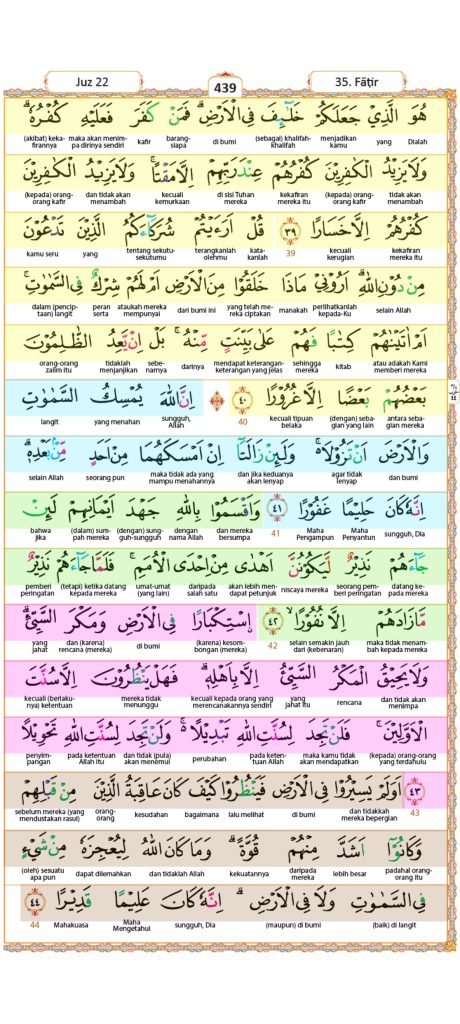 Juz 22
439
35. Fāṭir
هُوَ الَّذِيْ جَعَلَكُمْ خَلٰۤىِٕفَ فِى الْاَرْضِۗ فَمَنْ كَفَرَ فَعَلَيْهِ كُفْرُهٗۗ
Dialah yang menjadikan kamu (sebagai) khalifah-khalifah di bumi barang-siapa kafir maka akan menim-pa dirinya sendiri (akibat) keka-firannya
وَلَا يَزِيْدُ الْكٰفِرِيْنَ كُفْرُهُمْ عِنْدَ رَبِّهِمْ اِلَّا مَقْتًاۚ وَلَا يَزِيْدُ الْكٰفِرِيْنَ
dan tidak akan menambah (kepada) orang-orang kafir kekafiran mereka itu di sisi Tuhan mereka kecuali kemurkaan dan tidak akan menambah (kepada) orang-orang kafir
كُفْرُهُمْ اِلَّا خَسَارًا ٣٩ قُلْ اَرَءَيْتُمْ شُرَكَاۤءَكُمُ الَّذِيْنَ تَدْعُوْنَ
kekafiran mereka itu kecuali kerugian 39 kata-kanlah terangkanlah olehmu tentang sekutu-sekutumu yang kamu seru
مِنْ دُوْنِ اللّٰهِۗ اَرُوْنِيْ مَاذَا خَلَقُوْا مِنَ الْاَرْضِ اَمْ لَهُمْ شِرْكٌ فِى السَّمٰوٰتِۚ
selain Allah perlihatkanlah kepada-Ku manakah yang telah me-reka ciptakan dari bumi ini ataukah mereka mempunyai peran serta dalam (pencip-taan) langit
اَمْ اٰتَيْنٰهُمْ كِتٰبًا فَهُمْ عَلٰى بَيِّنَتٍ مِّنْهُۚ بَلْ اِنْ يَّعِدُ الظّٰلِمُوْنَ
atau adakah Kami memberi mereka kitab sehingga mereka mendapat keterangan-keterangan yang jelas darinya sebe-narnya tidaklah menjanjikan orang-orang zalim itu
بَعْضُهُمْ بَعْضًا اِلَّا غُرُوْرًا ٤٠ اِنَّ اللّٰهَ يُمْسِكُ السَّمٰوٰتِ
antara seba-gian mereka (dengan) seba-gian yang lain kecuali tipuan belaka 40 sungguh, Allah yang menahan langit
وَالْاَرْضَ اَنْ تَزُوْلَا ەۚ وَلَىِٕنْ زَالَتَآ اِنْ اَمْسَكَهُمَا مِنْ اَحَدٍ مِّنْۢ بَعْدِهٖۗ
dan bumi agar tidak lenyap dan jika keduanya akan lenyap maka tidak ada yang mampu menahannya seorang pun selain Allah
اِنَّهٗ كَانَ حَلِيْمًا غَفُوْرًا ٤١ وَاَقْسَمُوْا بِاللّٰهِ جَهْدَ اَيْمَانِهِمْ لَىِٕنْ
sungguh, Dia Maha Penyantun Maha Pengampun 41 dan mereka bersumpa dengan nama Allah (dengan) sung-guh-sungguh (dalam) sum-pah mereka bahwa jika
جَاۤءَهُمْ نَذِيْرٌ لَّيَكُوْنُنَّ اَهْدٰى مِنْ اِحْدَى الْاُمَمِۚ فَلَمَّا جَاۤءَهُمْ نَذِيْرٌ
datang ke-pada mereka seorang pem-beri peringatan niscaya mereka akan lebih men-dapat petunjuk daripada salah satu umat-umat (yang lain) (tetapi) ketika datang kepada mereka pemberi peringatan
مَّا زَادَهُمْ اِلَّا نُفُوْرًاۙ ٤٢ اِسْتِكْبَارًا فِى الْاَرْضِ وَمَكْرَ السَّيِّئِۗ
maka tidak menam-bah kepada mereka selain semakin jauh dari (kebenaran) 42 (karena) kesom-bongan (mereka) di bumi dan (karena) rencana (mereka) yang jahat
وَلَا يَحِيْقُ الْمَكْرُ السَّيِّئُ اِلَّا بِاَهْلِهٖۗ فَهَلْ يَنْظُرُوْنَ اِلَّا سُنَّتَ
dan tidak akan menimpa rencana yang jahat itu kecuali kepada orang yang merencanakannya sendiri mereka tidak menunggu kecuali (berlaku-nya) ketentuan
الْاَوَّلِيْنَۚ فَلَنْ تَجِدَ لِسُنَّتِ اللّٰهِ تَبْدِيْلًاۚ وَلَنْ تَجِدَ لِسُنَّتِ اللّٰهِ تَحْوِيْلًا
(kepada) orang-orang yang terdahulu maka kamu tidak akan mendapatkan pada keten-tuan Allah perubahan dan tidak (pula) akan menemui pada ketentuan Allah itu penyim-pangan
٤٣ اَوَلَمْ يَسِيْرُوْا فِى الْاَرْضِ فَيَنْظُرُوْا كَيْفَ كَانَ عَاقِبَةُ الَّذِيْنَ مِنْ قَبْلِهِمْ
43 dan tidakkah mereka bepergian di bumi lalu melihat bagaimana kesudahan orang-orang sebelum mereka (yang mendustakan rasul)
وَكَانُوْٓا اَشَدَّ مِنْهُمْ قُوَّةًۗ وَمَا كَانَ اللّٰهُ لِيُعْجِزَهٗ مِنْ شَيْءٍ
padahal orang-orang itu lebih besar daripada mereka kekuatannya dan tidaklah Allah dapat dilemahkan (oleh) sesuatu apa pun
فِى السَّمٰوٰتِ وَلَا فِى الْاَرْضِۗ اِنَّهٗ كَانَ عَلِيْمًا قَدِيْرًا ٤٤
(baik) di langit (maupun) di bumi sungguh, Dia Maha Mengetahui Mahakuasa 44